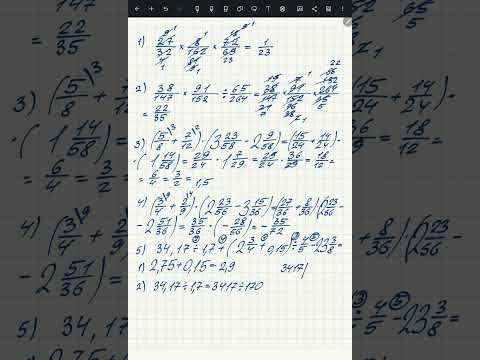 1) 27/32 × 18/162 × 72/69 = 1/23
2) 38/147 × 91/152 ÷ 65/264 = 38/147 × 91/152 × 264/65
= 22/35
3) (5/8 + 7/12) · (3 23/58 - 2 9/58) = (15/24 + 14/24) ·
· (1 14/58) = 29/24 · 1 7/29 = 29/24 · 36/29 = 18/12 =
= 6/4 = 3/2 = 1,5
4) (3/4 + 2/9) · (2 23/56 - 3 15/36) = (27/36 + 8/36) (2 23/56
- 2 51/36) = 35/36 · (- 28/56) = - 35/72
5) 34,17 ÷ 1,7 + (2 3/4 + 0,15) ÷ 4/5 - 23 3/8 =
1) 2,75 + 0,15 = 2,9
3417
2) 34,17 ÷ 1,7 = 3417 ÷ 170